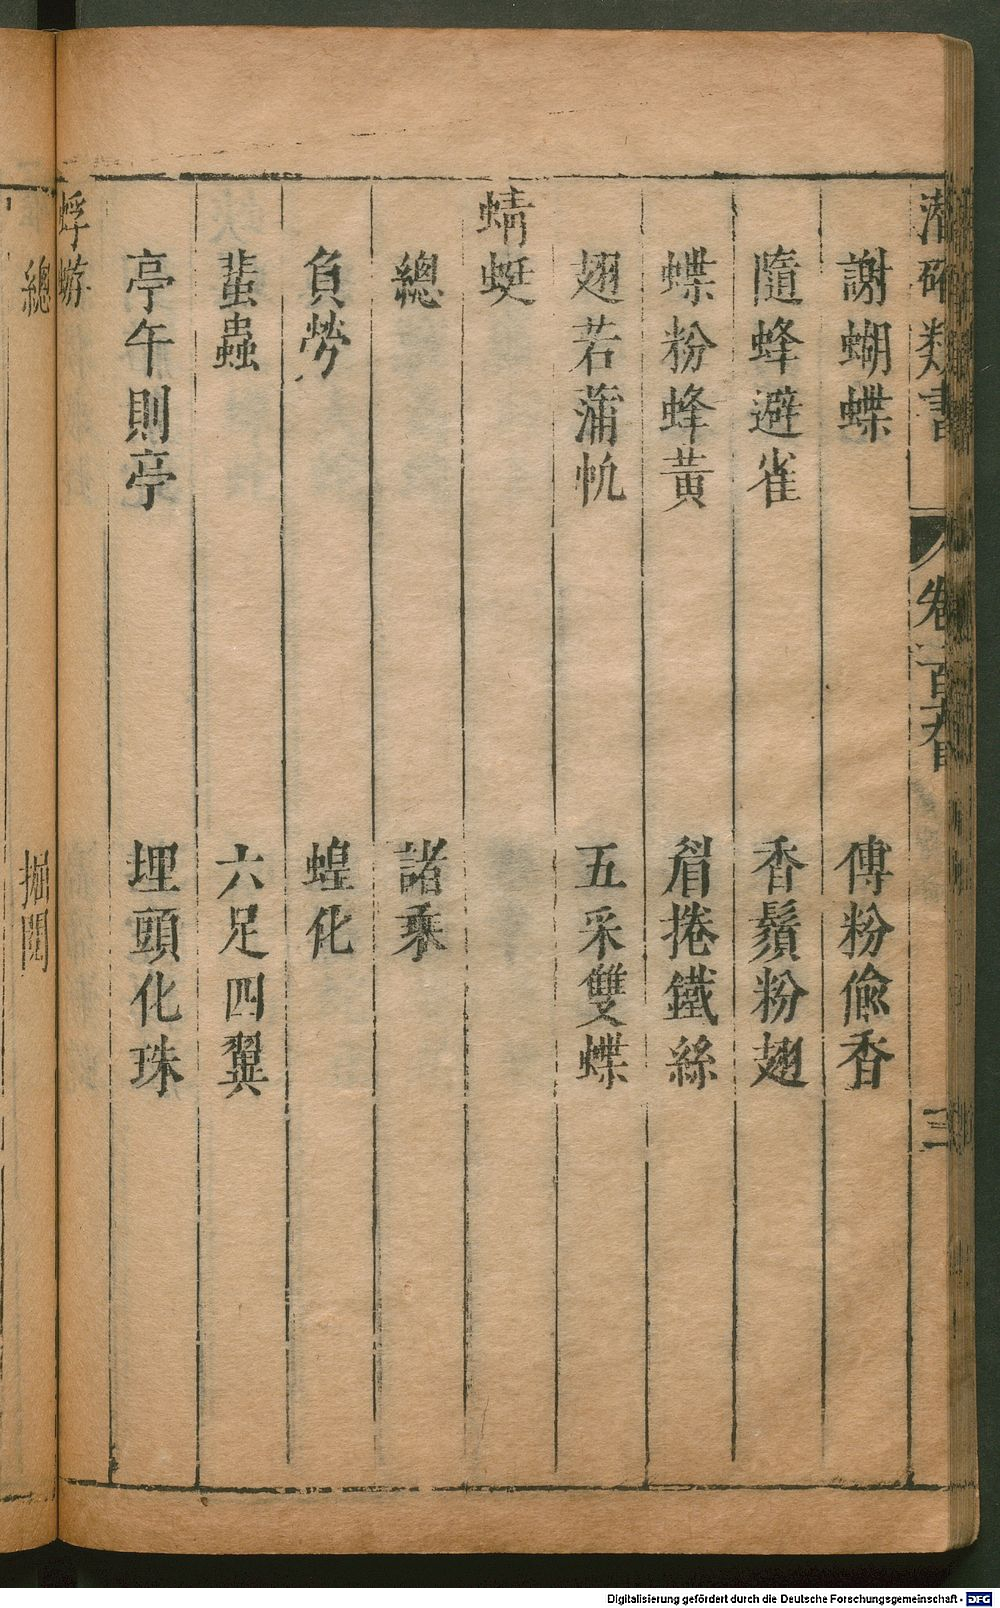 潛確類書 卷一百 三
謝蝴蝶 傅粉偷香
隨蜂避雀 香鬚粉翅
蝶粉蜂黃 眉捲鐵絲
翅若蒲帆 五采雙蝶
蜻蜓
總 諸乘
負勞 蝗化
蜚蟲 六足四翼
亭午則亭 埋頭化珠
蜉蝣
總 掘閱
Digitalisierung gefördert durch die Deutsche Forschungsgemeinschaft - DFG